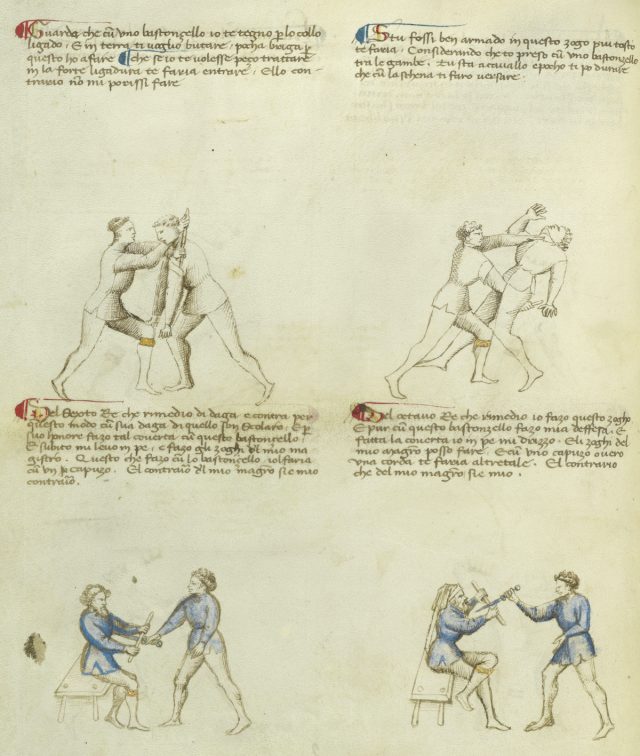 Guarda che cũ uno bastonçello io te tegno ꝑ lo collo
ligado, E in terra ti voglio butare, pocha briga ꝑ
questo ho a fare Che se io te volesse peço trattare
in la forte ligadura te faria entrare, Ello con-
trario nõ mi porissi fare
Stu fossi ben armado in questo zogo piu tosto
te faria, Considerando che to preso cũ uno bastonzello
tra le gambe. Tu sta a cavallo e pocho ti po durare
che cũ la schena ti faro versare.
Del Sexto Re che remedio di daga e contra per
questo modo cũ sua daga di quello son Scolaro, E ꝑ
suo honore fazo tal coverta cũ questo bastoncello,
E subito mi levo in pe, e fazo gli zoghi dl mio ma
gistro. Questo che fazo cũ lo bastonzello io lfaria
cũ vn capuzo. El contraiõ dl mio magrõ si e mio
contraiõ.
Del octavo Re che remedio io fazo questo zogho
E pur cũ questo bastonzello fazo mia deffesa, E
fatta la coverta io in pe mi drizzo, E li zoghi del
mio magrõ posso fare, E cũ uno capuzo overo
una corda te faria altretale. El contrario
che del mio magrõ si e mio.